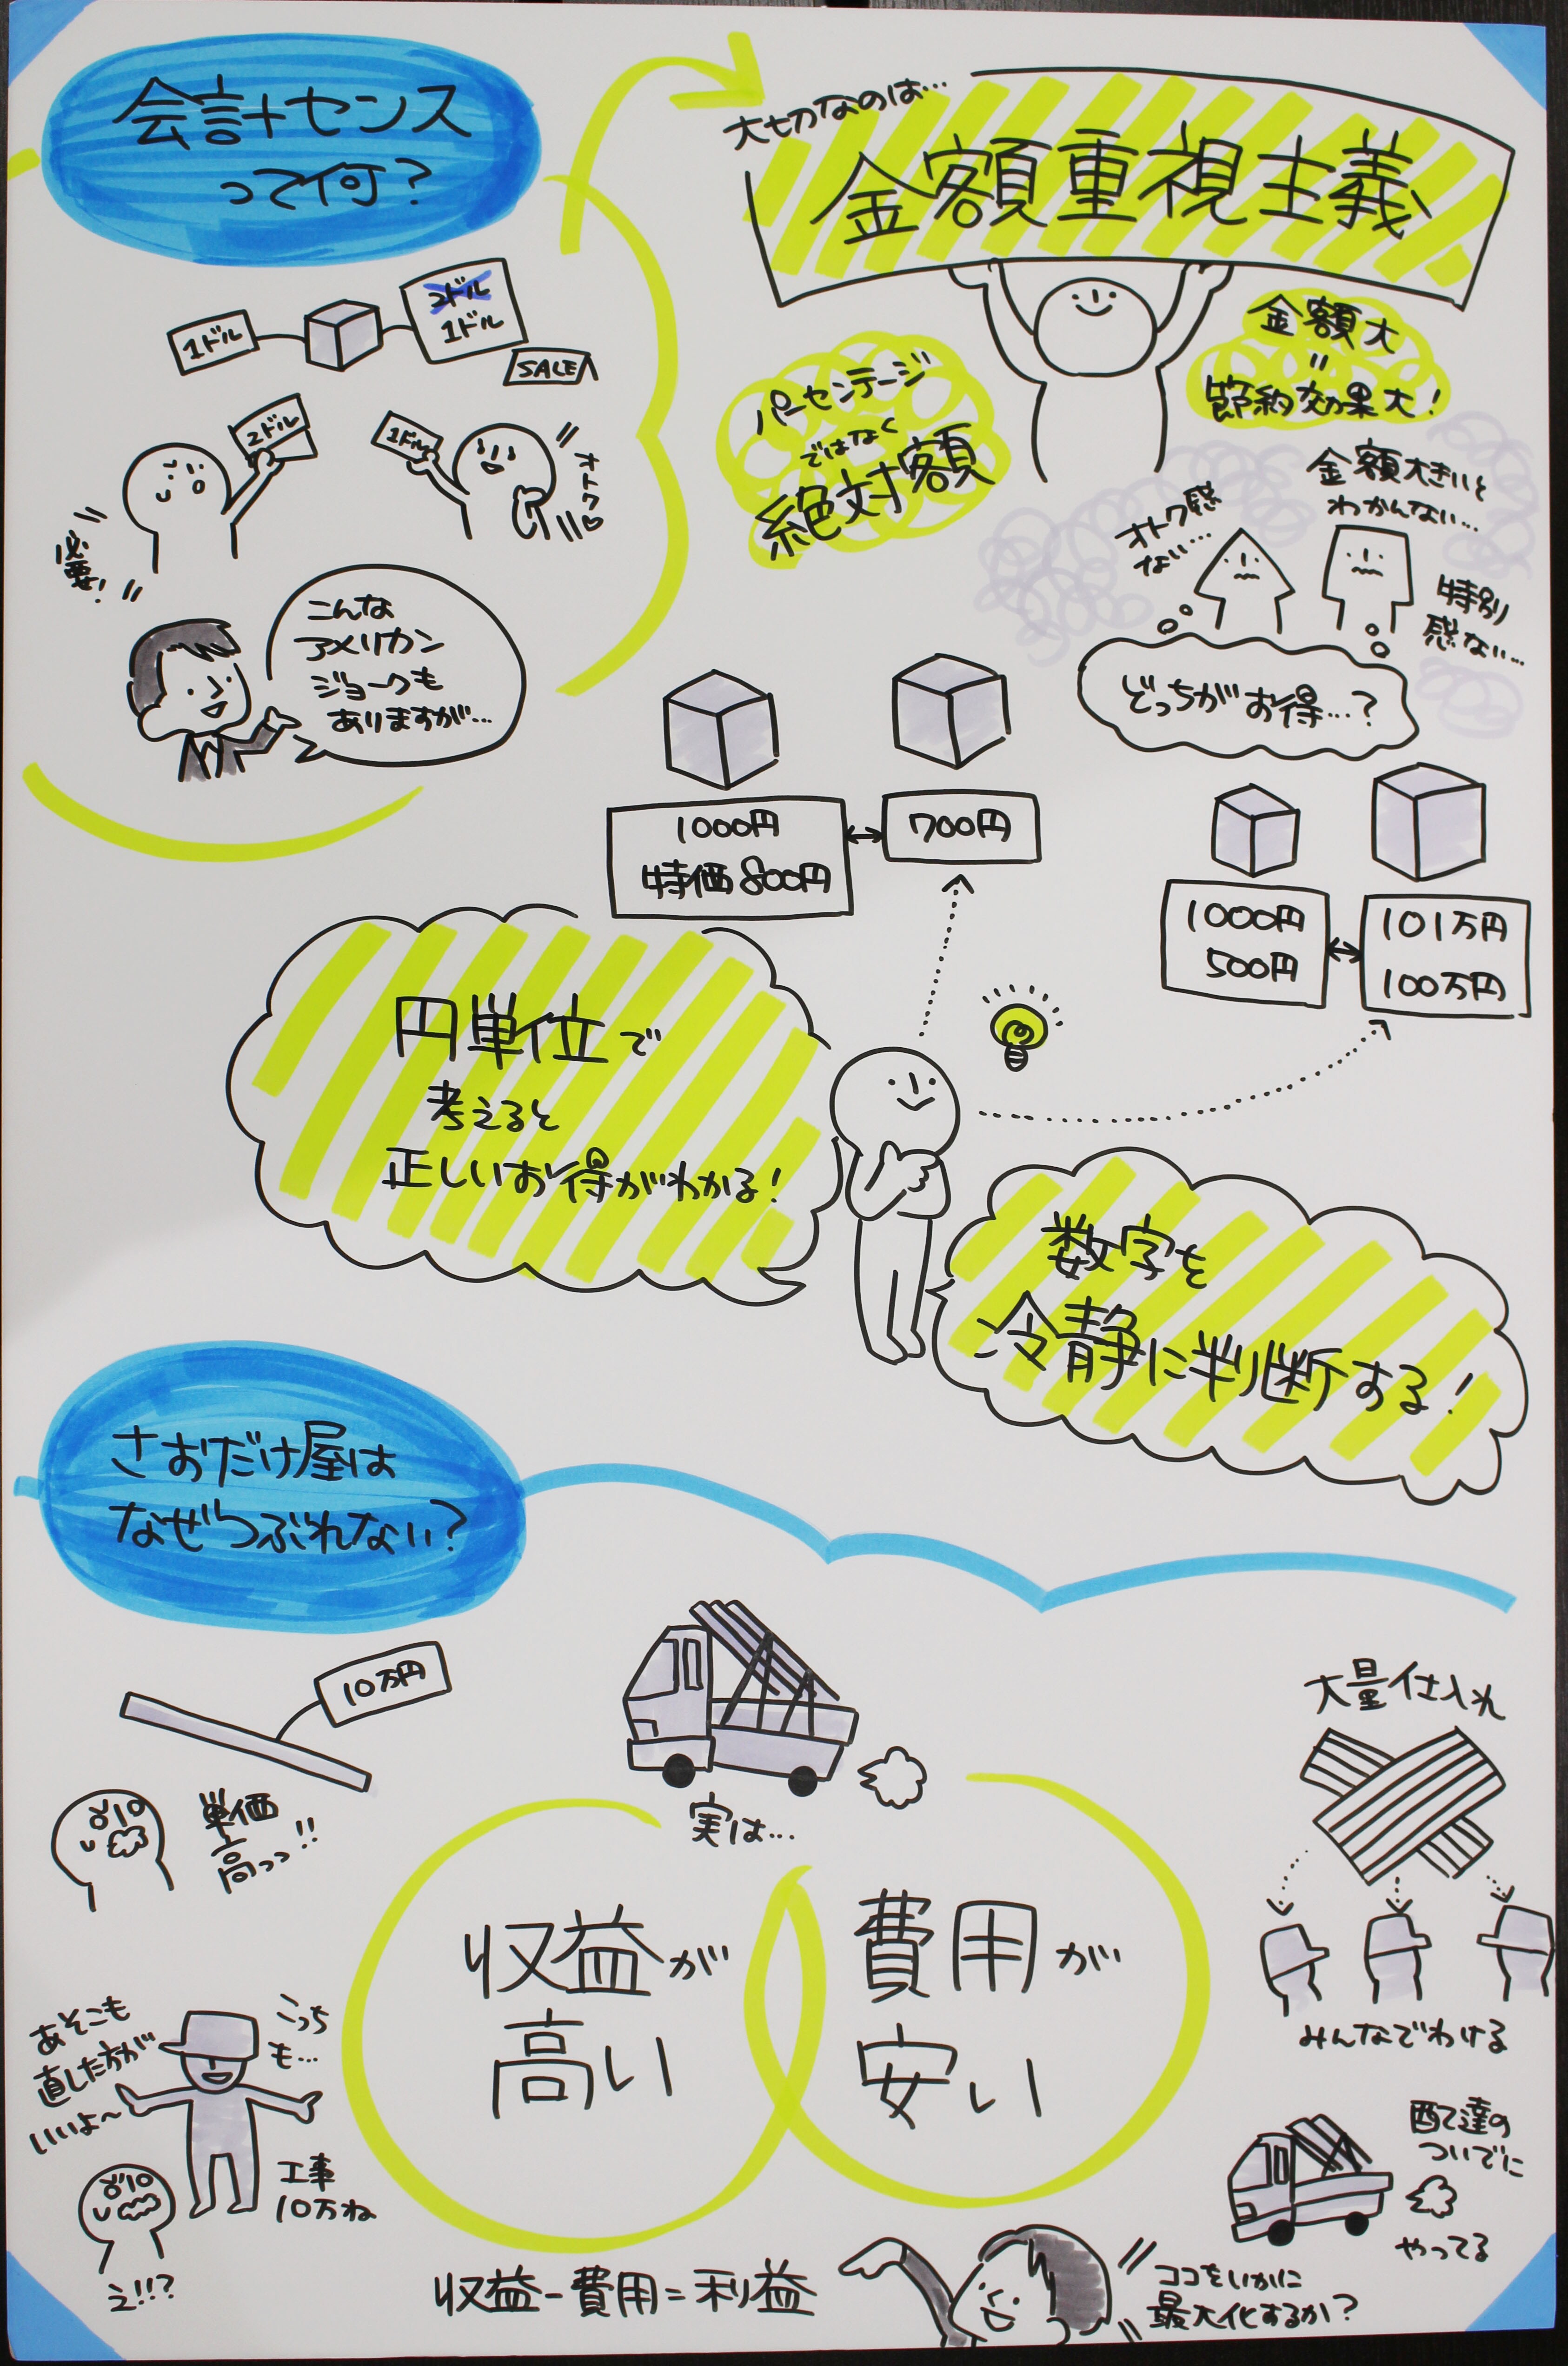 会計センス
って何?
1ドル
2ドル
1ドル
SALE
2ドル
1ドル
オトク♡
必要!
こんな
アメリカン
ジョークも
ありますが…
大切なのは…
金額重視主義
パーセンテージ
ではなく
絶対額
金額大
=
節約効果大!
オトク感
ない…
金額大きいと
わかんない…
特別
感ない…
どっちがお得…?
1000円
特価800円
700円
1000円
500円
101万円
100万円
円単位で
考えると
正しいお得がわかる!
数字を
冷静に判断する!
さおだけ屋は
なぜつぶれない?
10万円
単価
高っっ!!
あそこも
直した方が
いいよ~
こっち
も…
工事
10万ね
え!!?
実は…
収益が
高い
費用が
安い
収益-費用=利益
ココをいかに
最大化するか?
大量仕入れ
みんなでわける
配達の
ついでに
やってる